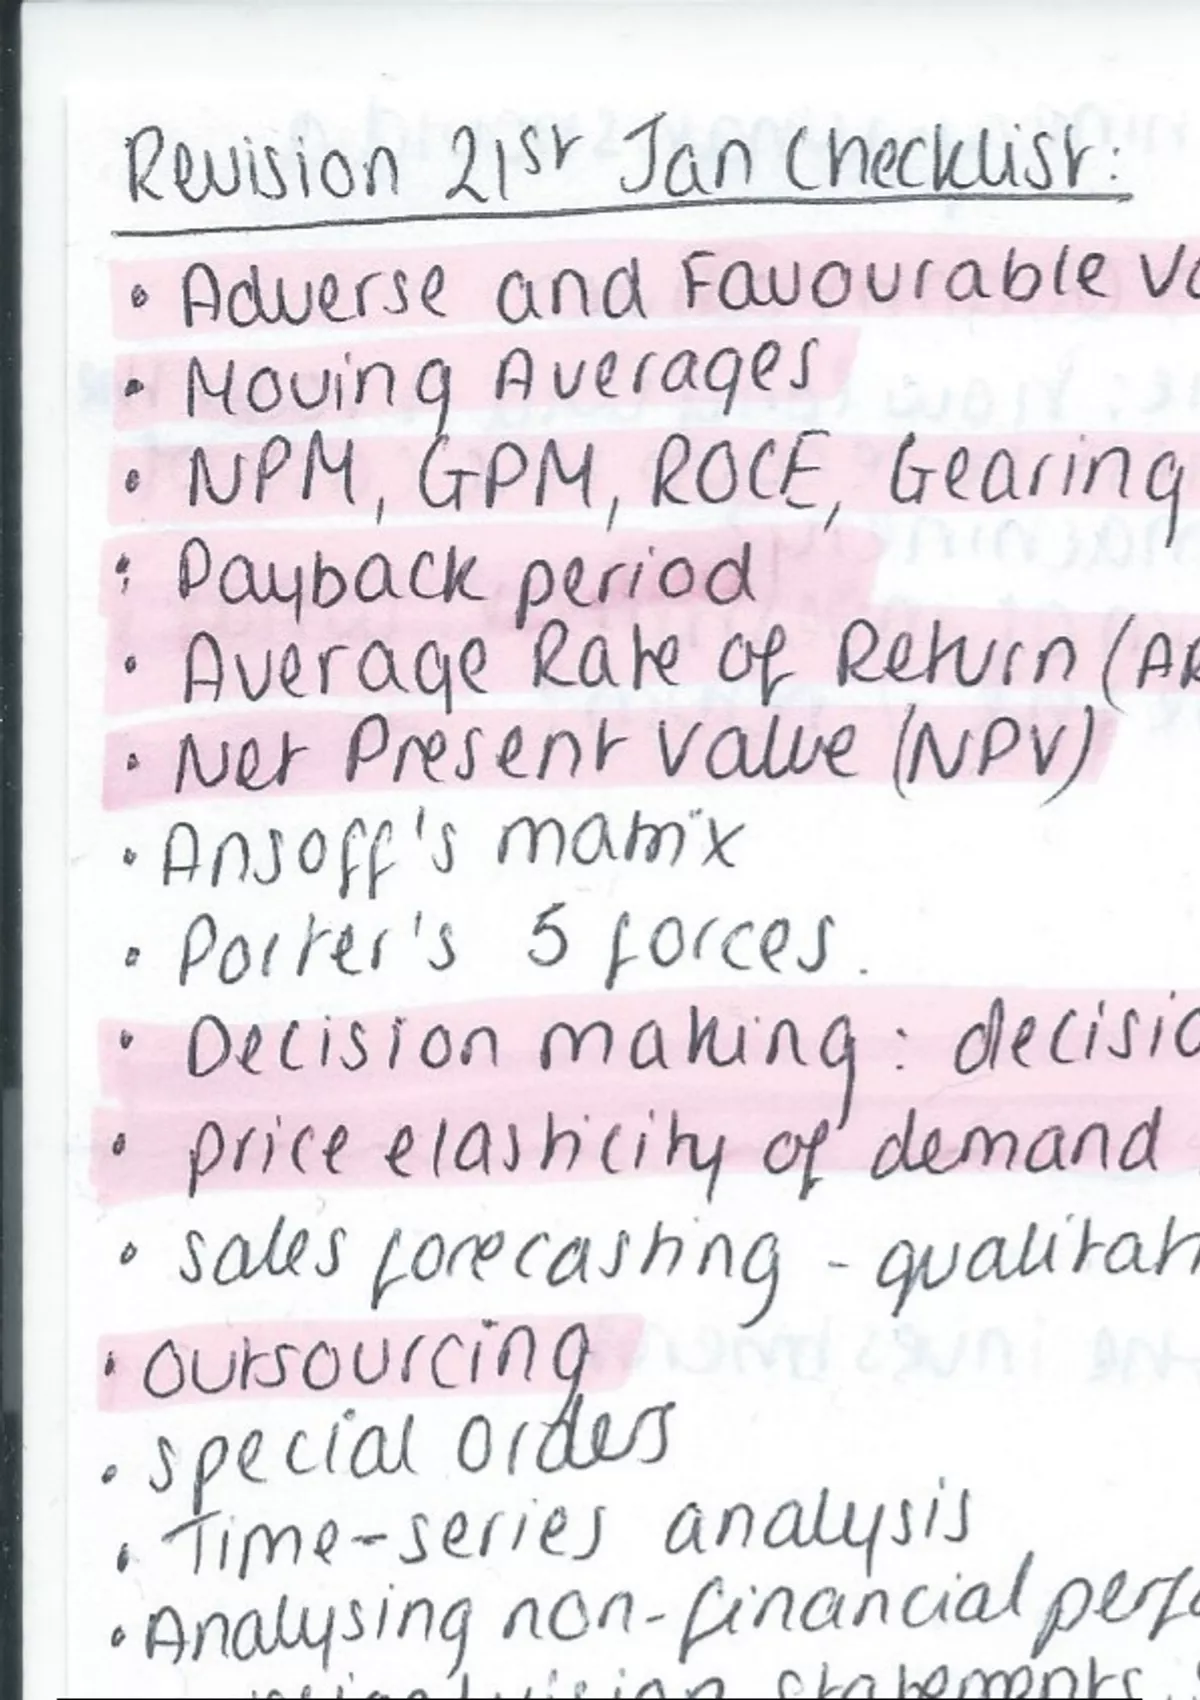 Revision 21st Jan Checklist:
• Adverse and Favourable Va
• Moving Averages
• NPM, GPM, ROCE, Gearing
• Payback period
• Average Rate of Return (AR
• Net Present Value (NPV)
• Ansoff's matrix
• Porter's 5 forces.
• Decision making: decisio
• price elasticity of demand
• sales forecasting - qualitati
• outsourcing
• special orders
• Time-series analysis
• Analysing non-financial perfo
statements